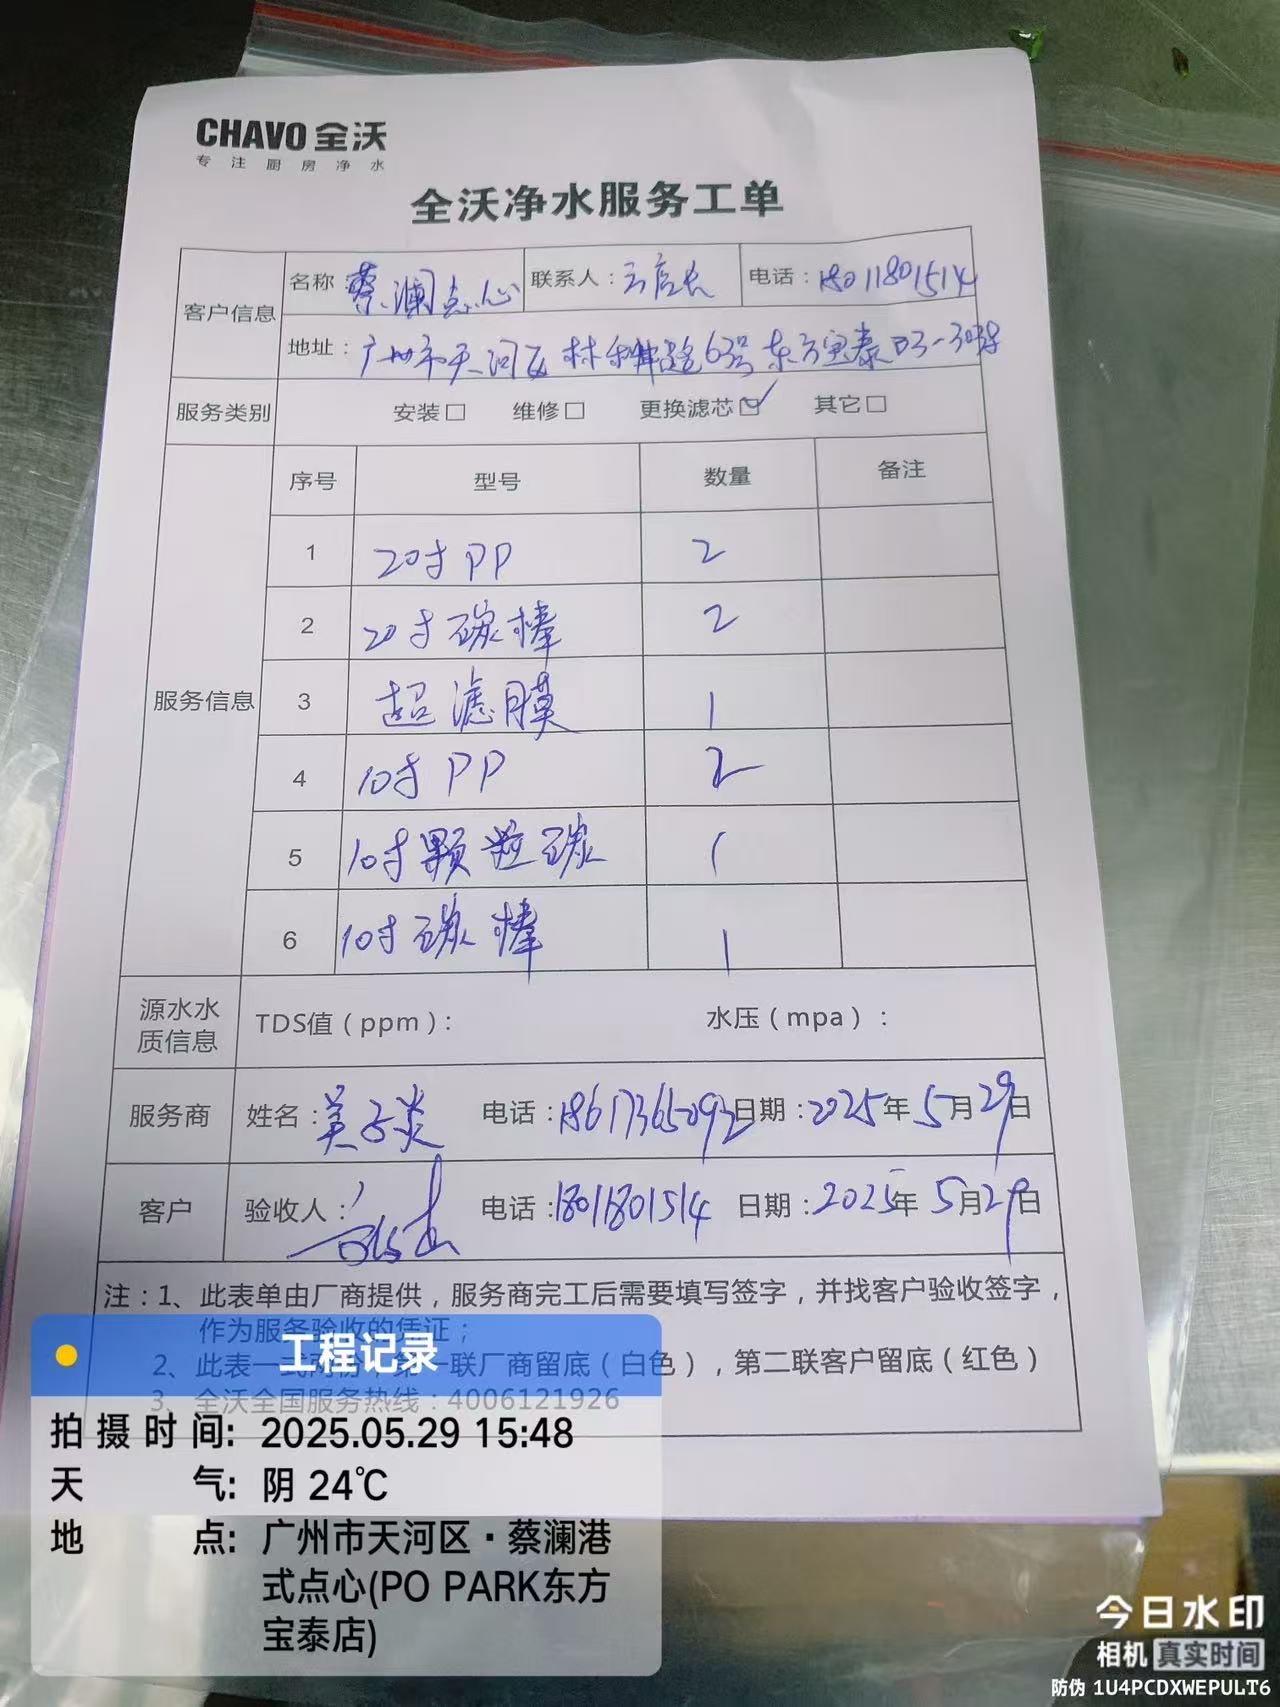 CHAVO 全沃
专注厨房净水
全沃净水服务工单
客户信息 名称：蔡澜点心 联系人：云店长 电话：18011801514
地址：广州市天河区林和中路63号东方宝泰
服务类别 安装□ 维修□ 更换滤芯☑ 其它□
服务信息 序号 型号 数量 备注
1 20寸PP 2
2 20寸碳棒 2
3 超滤膜 1
4 10寸PP 2
5 10寸颗粒碳 1
6 10寸碳棒 1
源水水质信息 TDS值（ppm）： 水压（mpa）：
服务商 姓名： 电话：18617365093 日期：2025年5月29日
客户 验收人： 电话：18011801514 日期：2025年5月29日
注：1、此表单由厂商提供，服务商完工后需要填写签字，并找客户验收签字，
作为服务验收的凭证；
2、此表一式两份，第一联厂商留底（白色），第二联客户留底（红色）
3、全沃全国服务热线：4006121926
工程记录
拍摄时间: 2025.05.29 15:48
天气: 阴 24℃
地点: 广州市天河区·蔡澜港
式点心(PO PARK东方
宝泰店)
今日水印
相机 真实时间
防伪 1U4PCDXWEPULT6